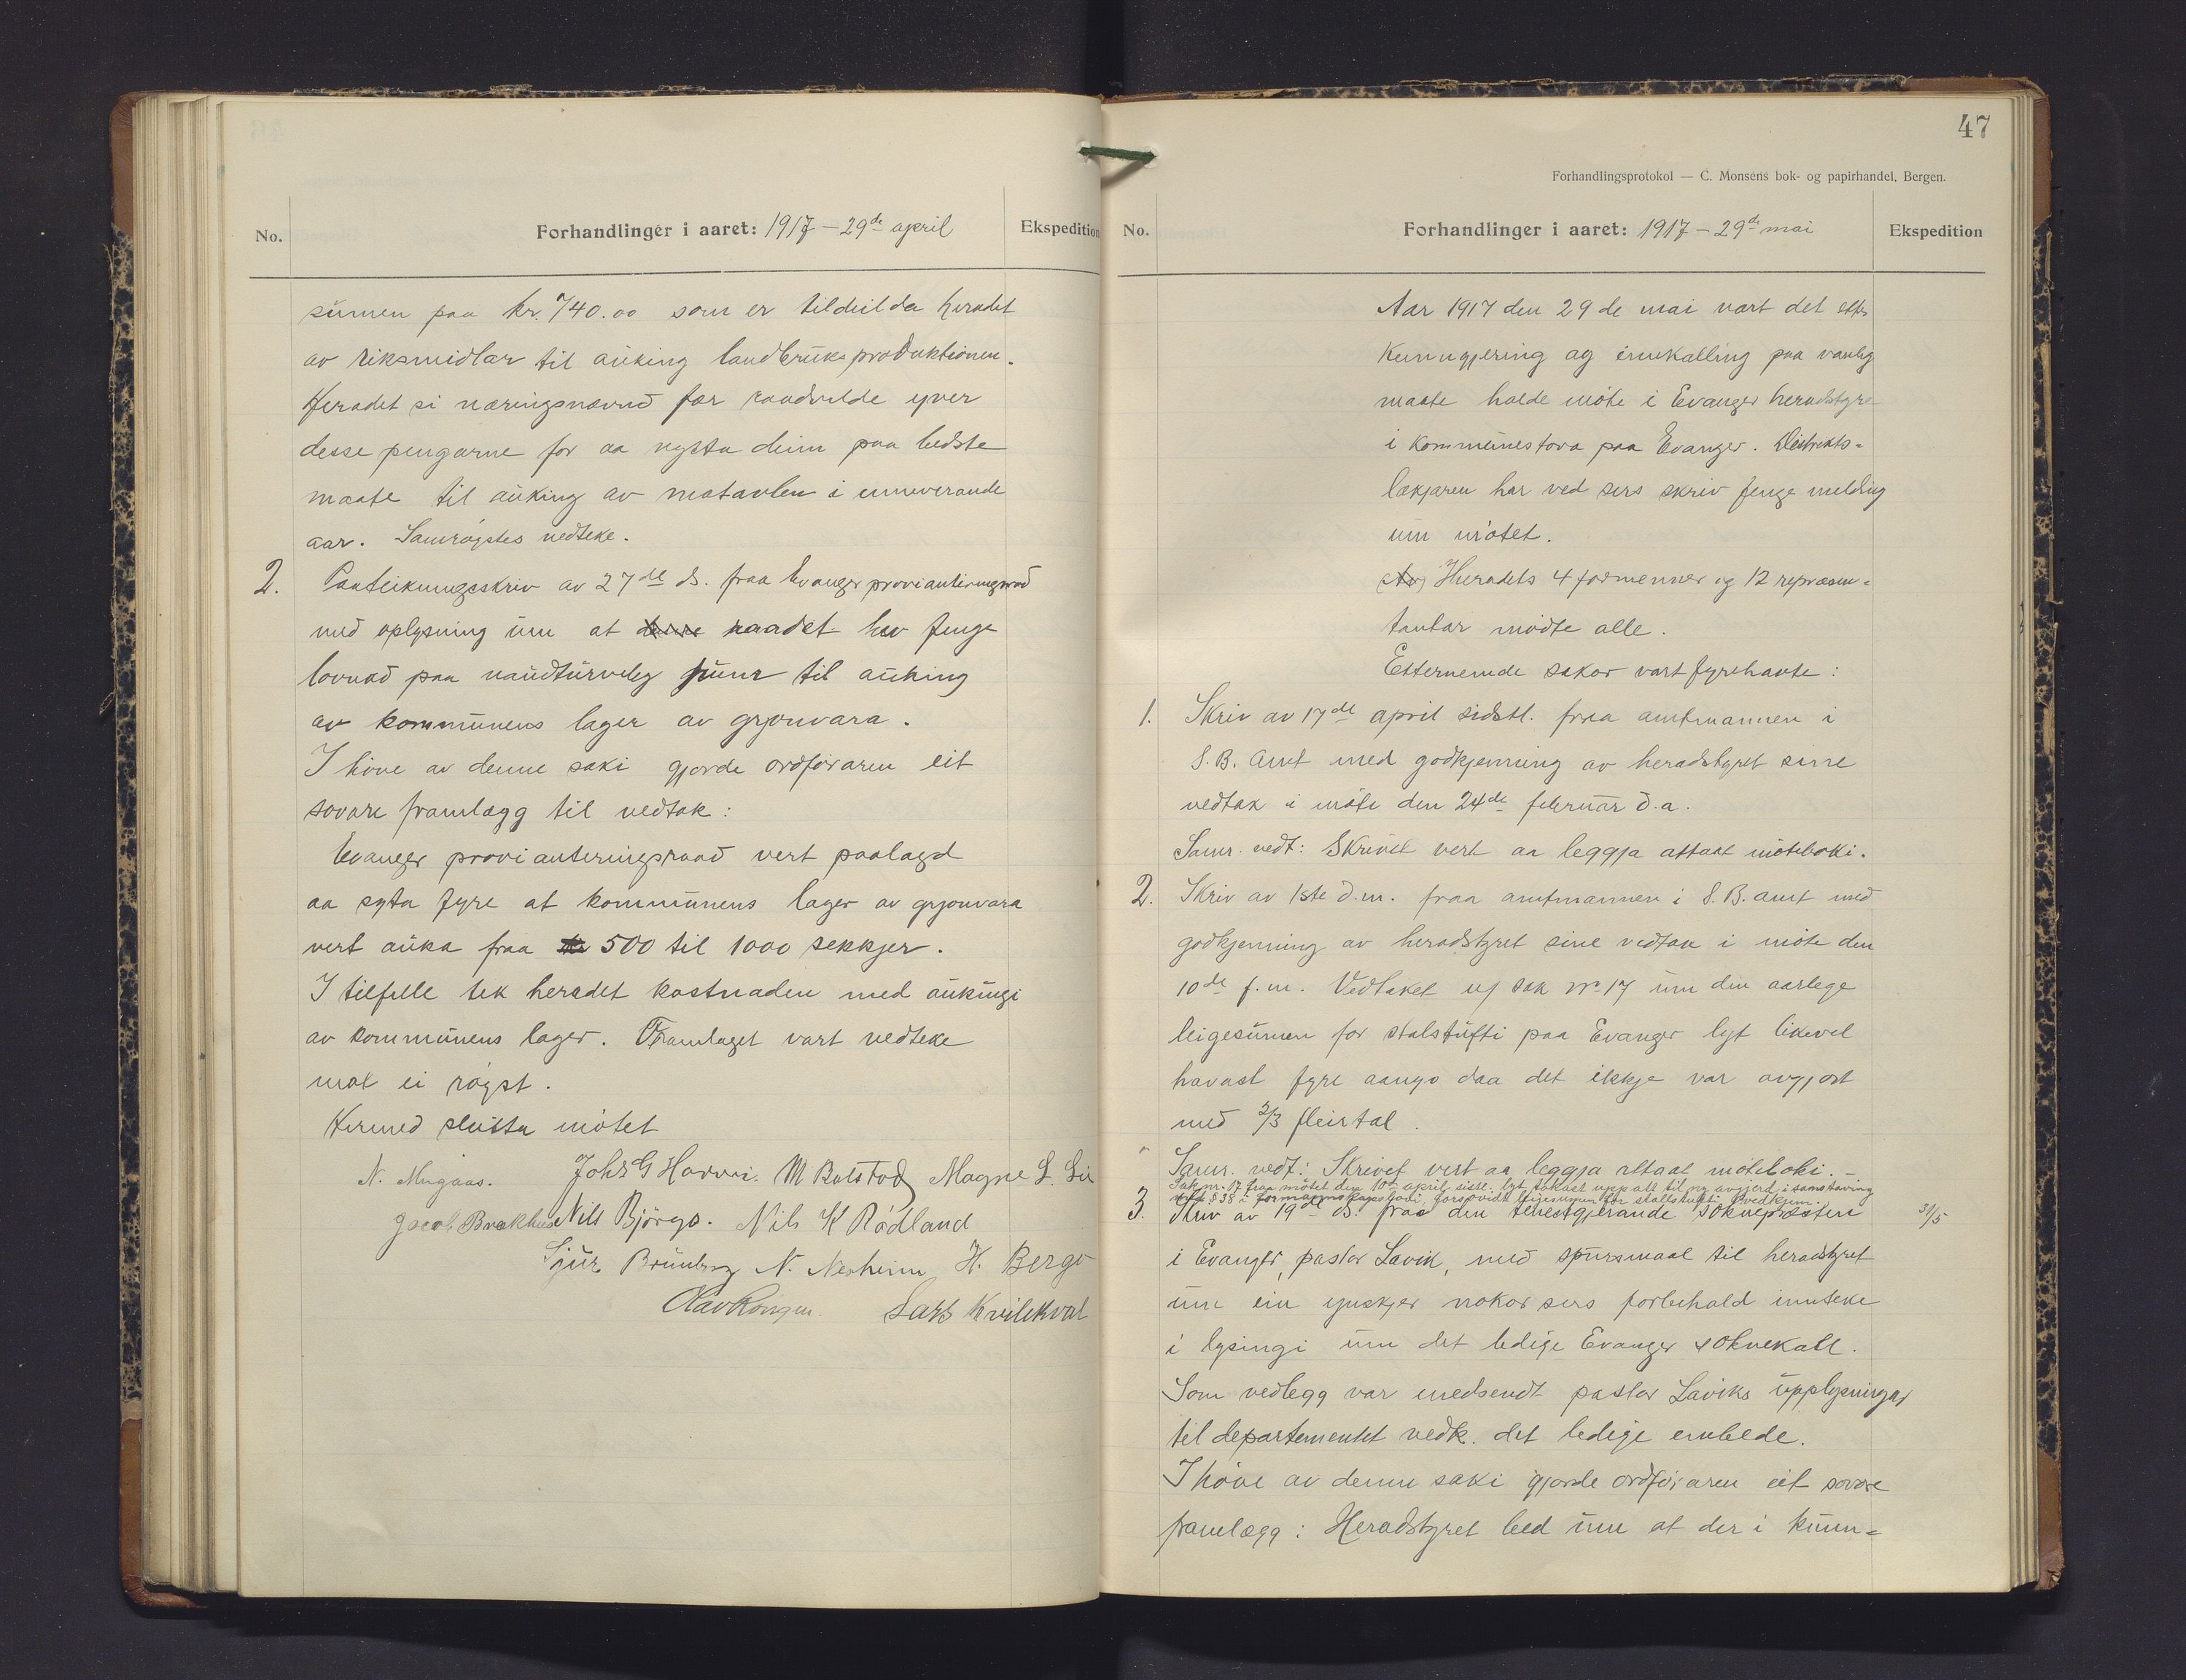 No.
Forhandlinger i aaret: 1917 – 29de april
Ekspedition
sumen paa kr. 740.00 som er tildeilda heradet
av riksmidlar til auking landbruksproduktionen.
Heradet si næringsnævnd fær raadvelde yver
desse pengarne for aa nytta deim paa bedste
maate til auking av matavlen i inneverande
aar. Samrøystes vedteke.
2. Paateikningsskriv av 27de ds. fraa Evanger provianteringsraad
med oplysning um at raadet hev fenge
lovnad paa naudturveleg sum til auking
av kommunens lager av grjonvara.
I høve av denne saki gjorde ordføraren eit
sovore framlægg til vedtak:
Evanger provianteringsraad vert paalagd
aa syta fyre at kommunens lager av grjonvara
vert auka fraa 500 til 1000 sekkjer.
I tilfelle tek heradet kostnaden med aukingi
av kommunens lager. Framlaget vart vedteke
mot ei røyst.
Hermed slutta møtet
N. Mugaas. Johs G Horvei. M Bolstad Magne L. Lie
Jacob Brekhus Nils Bjørgo. Nils K Rødland
Sjur Brunborg N. Nesheim H. Bergo
Olav Rongen. Lars Kvilekval
47
Forhandlingsprotokol — C. Monsens bok- og papirhandel, Bergen.
No.
Forhandlinger i aaret: 1917 – 29de mai
Ekspedition
Aar 1917 den 29de mai vart det etter
kunngjering og innkalling paa vanleg
maate halde møte i Evanger heradstyre
i kommunestova paa Evanger. Distrikts-
lækjaren har ved sers skriv fenge melding
um møtet.
Av Heradets 4 formenner og 12 repræsen-
tantar møtte alle.
Etternemde sakor vart fyrehavte:
1. Skriv av 17de april sidstl. fraa amtmannen i
S.B. Amt med godkjenning av heradstyret sine
vedtak i møte den 24de februar d.a.
Samr. vedt: Skrivet vert aa leggja attaat møteboki.
2. Skriv av 1ste d.m. fraa amtmannen i S.B. amt med
godkjenning av heradstyret sine vedtak i møte den
10de f.m. Vedtaket uj sak nr 17 um den aarlege
leigesumen for stalstufti paa Evanger lyt likevel
havast fyre aango daa det ikkje var avgjort
med 2/3 fleirtal.
Samr. vedt: Skrivet vert aa leggja attaat møteboki. –
Sak nr. 17 fraa møtet den 10de april sistl. lyt takast upp att til ny avgjerd i samstaving
med § 38 i formannskapslovi, forsovidt leigesumen for stallstufti vedkjem.
3. Skriv av 19de ds. fraa den tenestgjerande soknepresten
31/5
i Evanger, pastor Lavik, med spursmaal til heradstyret
um ein ynskjer nokor sers forbehald innteke
i lysingi um det ledige Evanger soknekall.
Som vedlegg var medsendt pastor Laviks upplysningar
til departementet vedk. det ledige embede.
I høve av denne saki gjorde ordføraren eit sovore
framlægg: Heradstyret beed um at der i kunn-